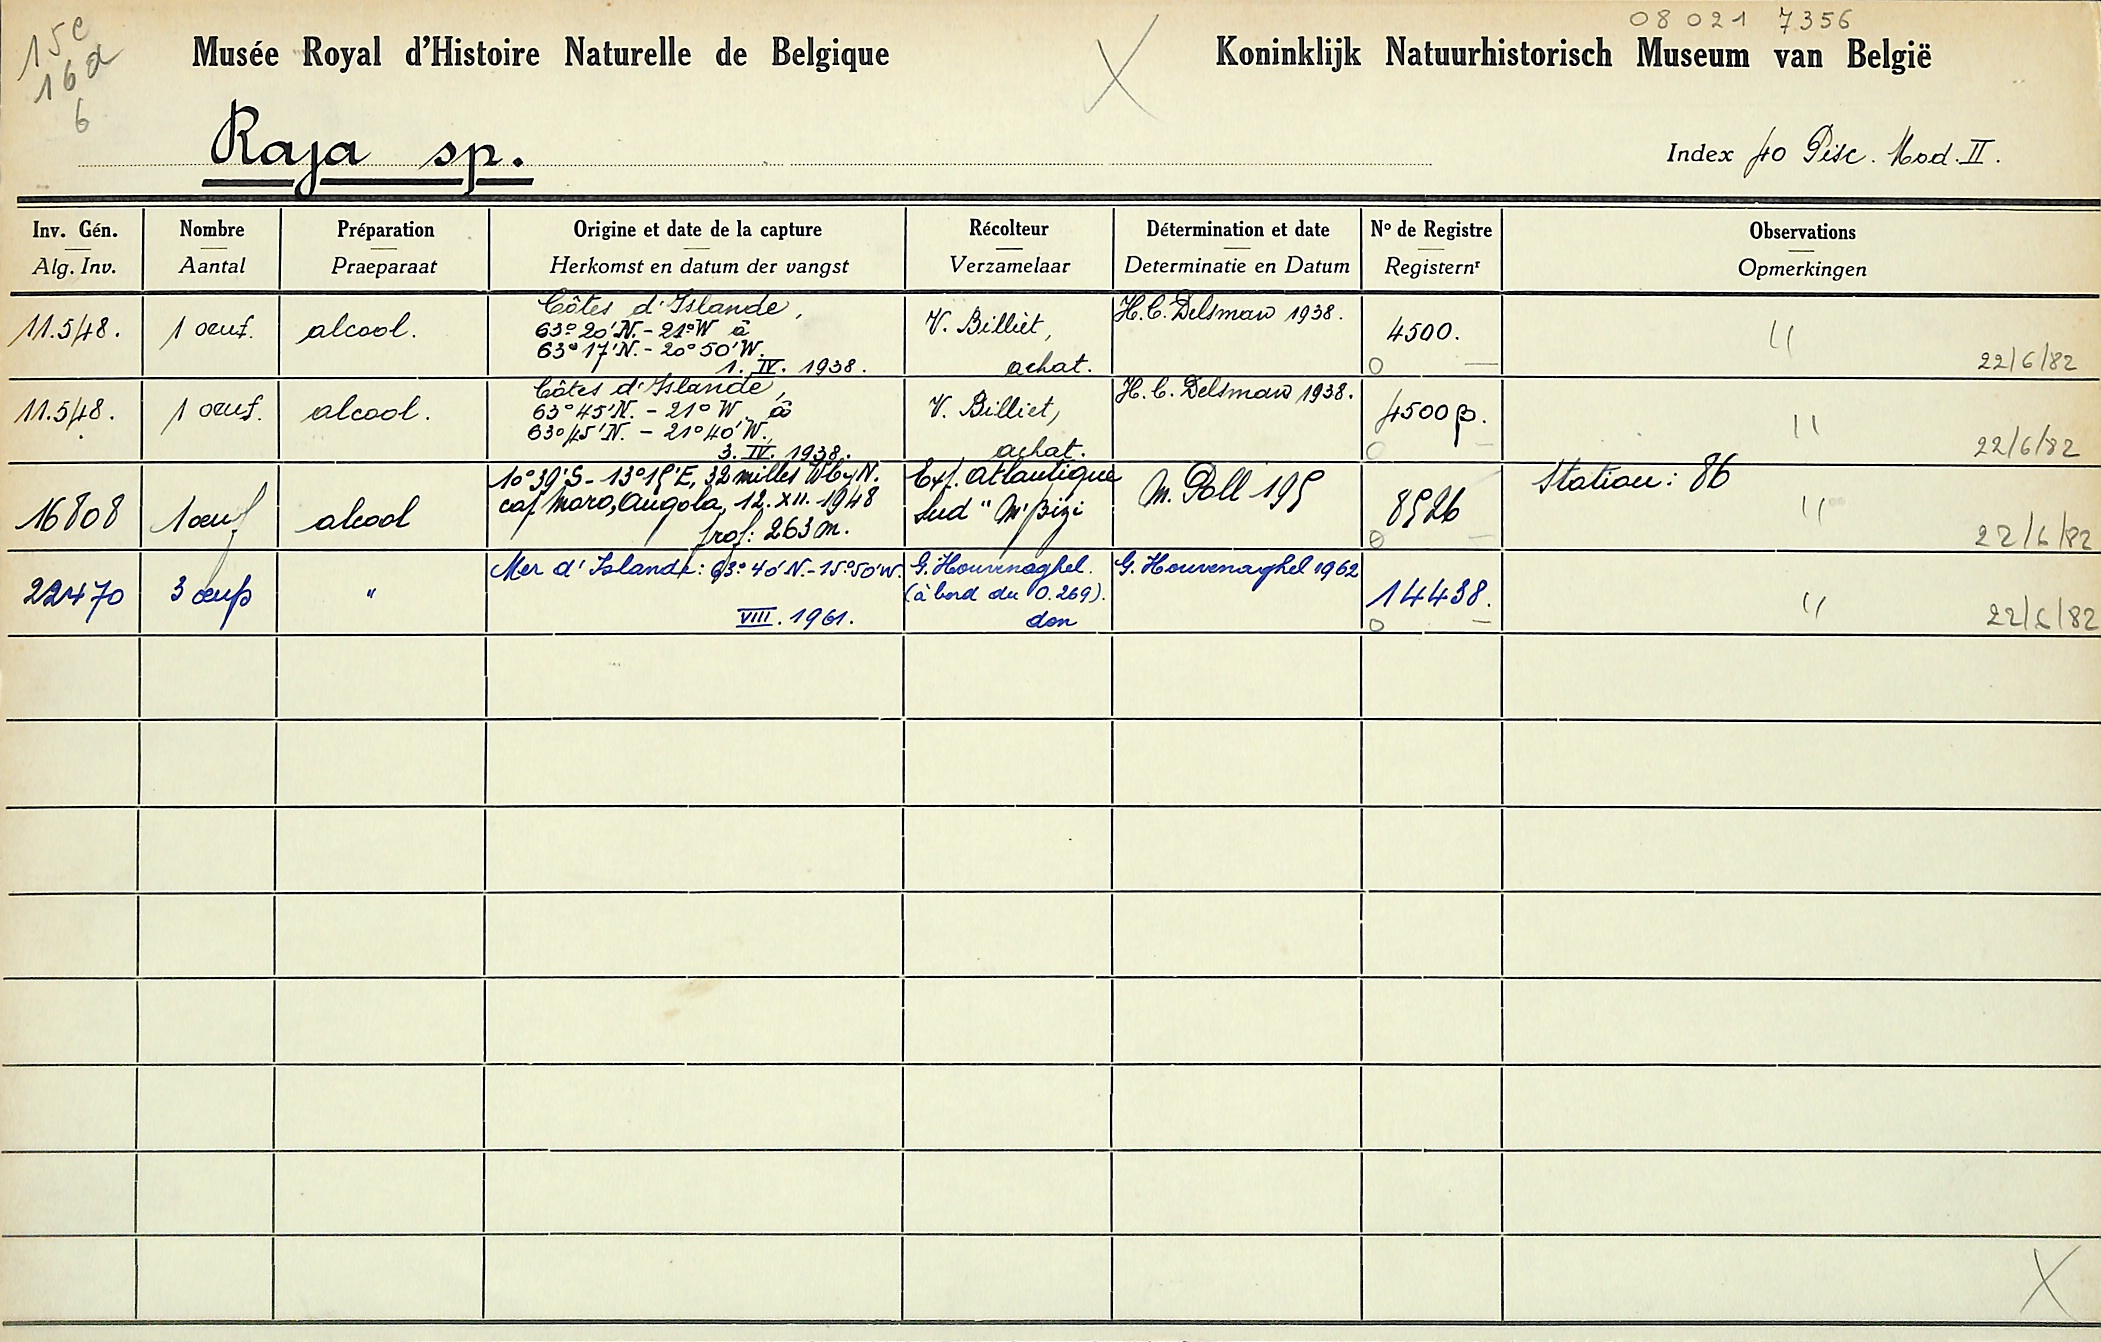 15c
16a
6
08 021 7356
Musée Royal d'Histoire Naturelle de Belgique
Koninklijk Natuurhistorisch Museum van België
Raja sp.
Index 40 Pisc. Mod. II.
Inv. Gén. Nombre Préparation Origine et date de la capture Récolteur Détermination et date N° de Registre Observations
Alg. Inv. Aantal Praeparaat Herkomst en datum der vangst Verzamelaar Determinatie en Datum Registernr Opmerkingen
11.548. 1 oeuf. alcool.
Côtes d'Islande,
63° 20' N. - 21° W à
63° 17' N. - 20° 50' W.
1. IV. 1938.
V. Billiet,
achat.
H. C. Delsman 1938.
4500.
"
22/6/82
11.548. 1 oeuf. alcool.
Côtes d'Islande,
63° 45' N. - 21° W. à
63° 45' N. - 21° 40' W.,
3. IV. 1938.
V. Billiet,
achat.
H. C. Delsman 1938.
4500 β.
"
22/6/82
16808 1 oeuf alcool
10°39'S - 13°15'E, 32 milles W by N.
cap Moro, Angola, 12. XII. 1948
prof: 263 m.
Exp. Atlantique
Sud "M'Bizi
M. Poll 195
8526
Station: 86
"
22/6/82
22470 3 oeufs "
Mer d'Islande: 63° 40' N. - 15° 50' W.
VIII. 1961.
G. Houvenaghel.
(à bord du O. 269).
don
G. Houvenaghel 1962
14438.
"
22/6/82